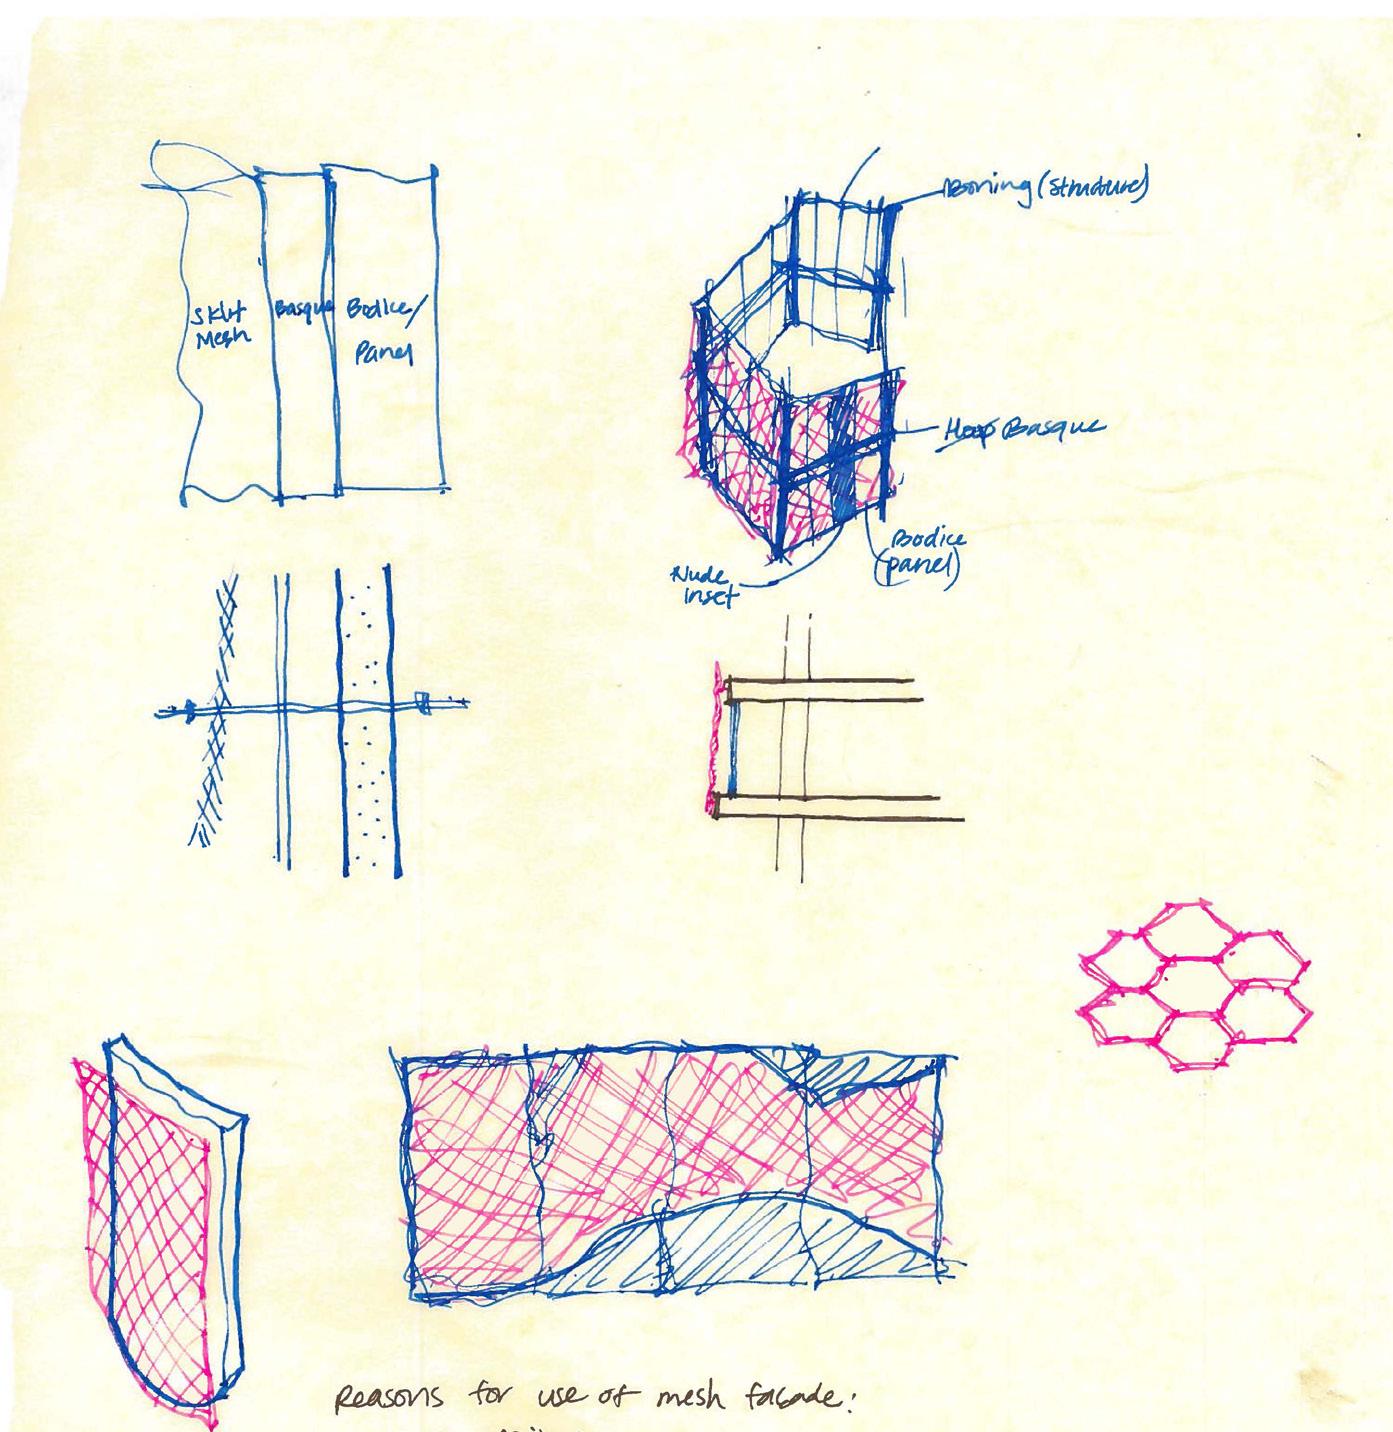 Skirt
Mesh
Basque
Bodice/
Panel
Boning (Structure)
Hoop Basque
Bodice
(panel)
Nude
inset
Reasons for use of mesh facade: